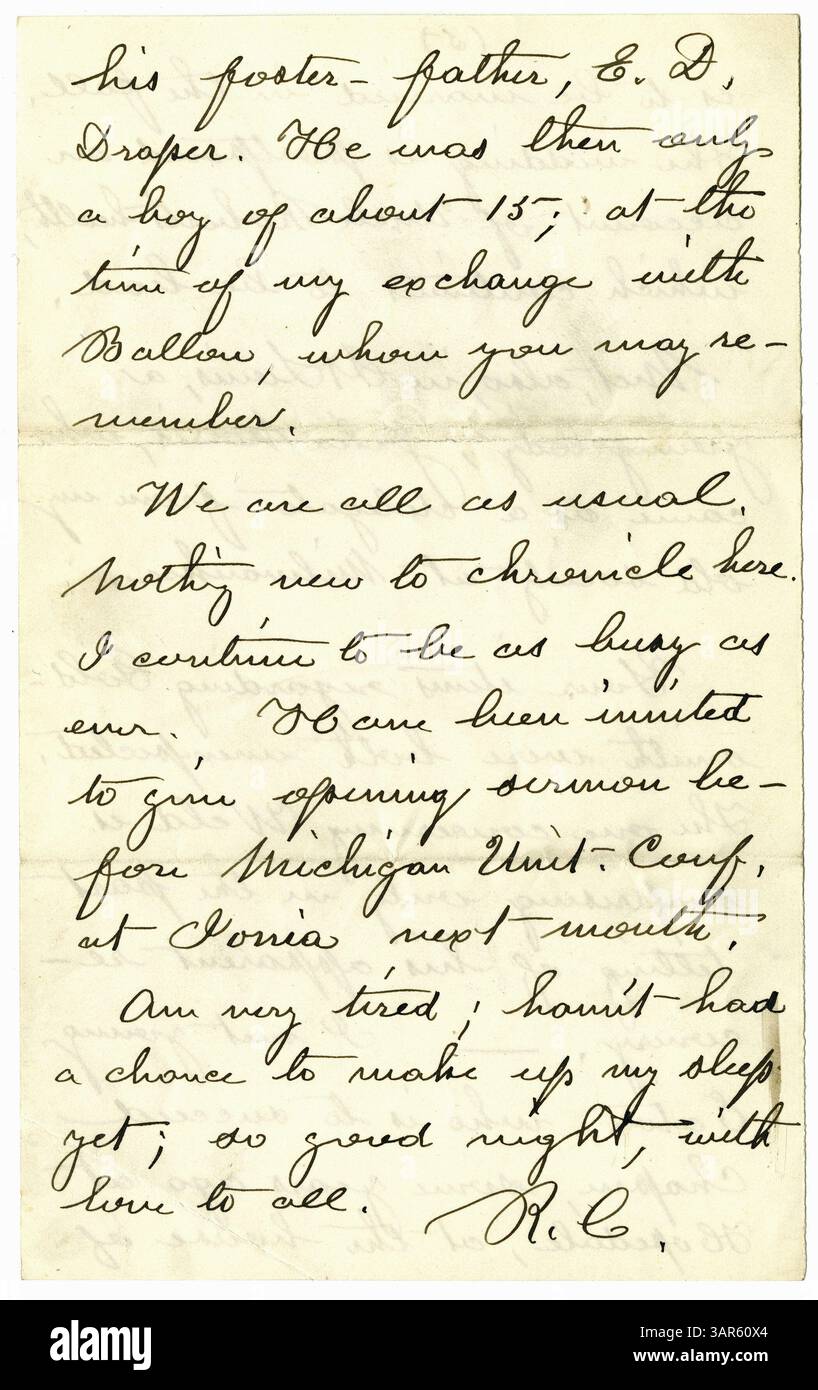 his foster-father, E. D.
Draper. He was then only
a boy of about 15; at the
time of my exchange with
Ballou, whom you may re-
member.
We are all as usual.
Nothing new to chronicle here.
I continue to be as busy as
ever. Have been invited
to give opening sermon be-
fore Michigan Unit. Conf.
at Ionia next month.
Am very tired; haven't had
a chance to make up my sleep
yet; so good night, with
love to all. R. C.
alamy
Image ID: 3AR60X4
www.alamy.com